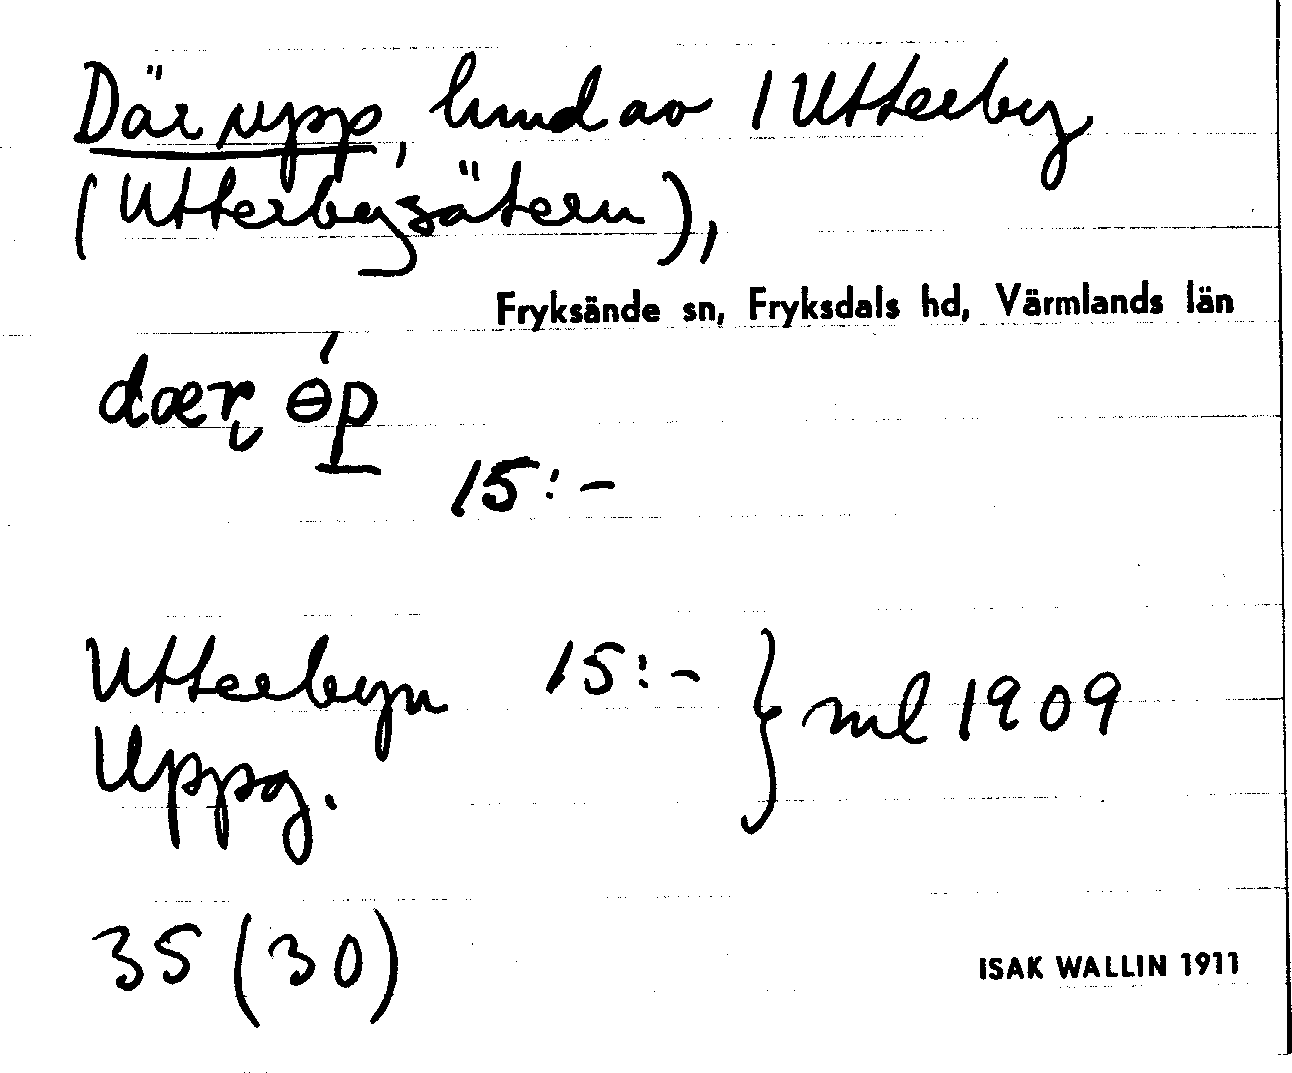 Där upp, lund av 1 Utterby
(Utterbysätern),
Fryksände sn, Fryksdals hd, Värmlands län
dær ɵ́p
15:-
Utterbyn 15:- } ml 1909
Uppg.
35 (30)
ISAK WALLIN 1911